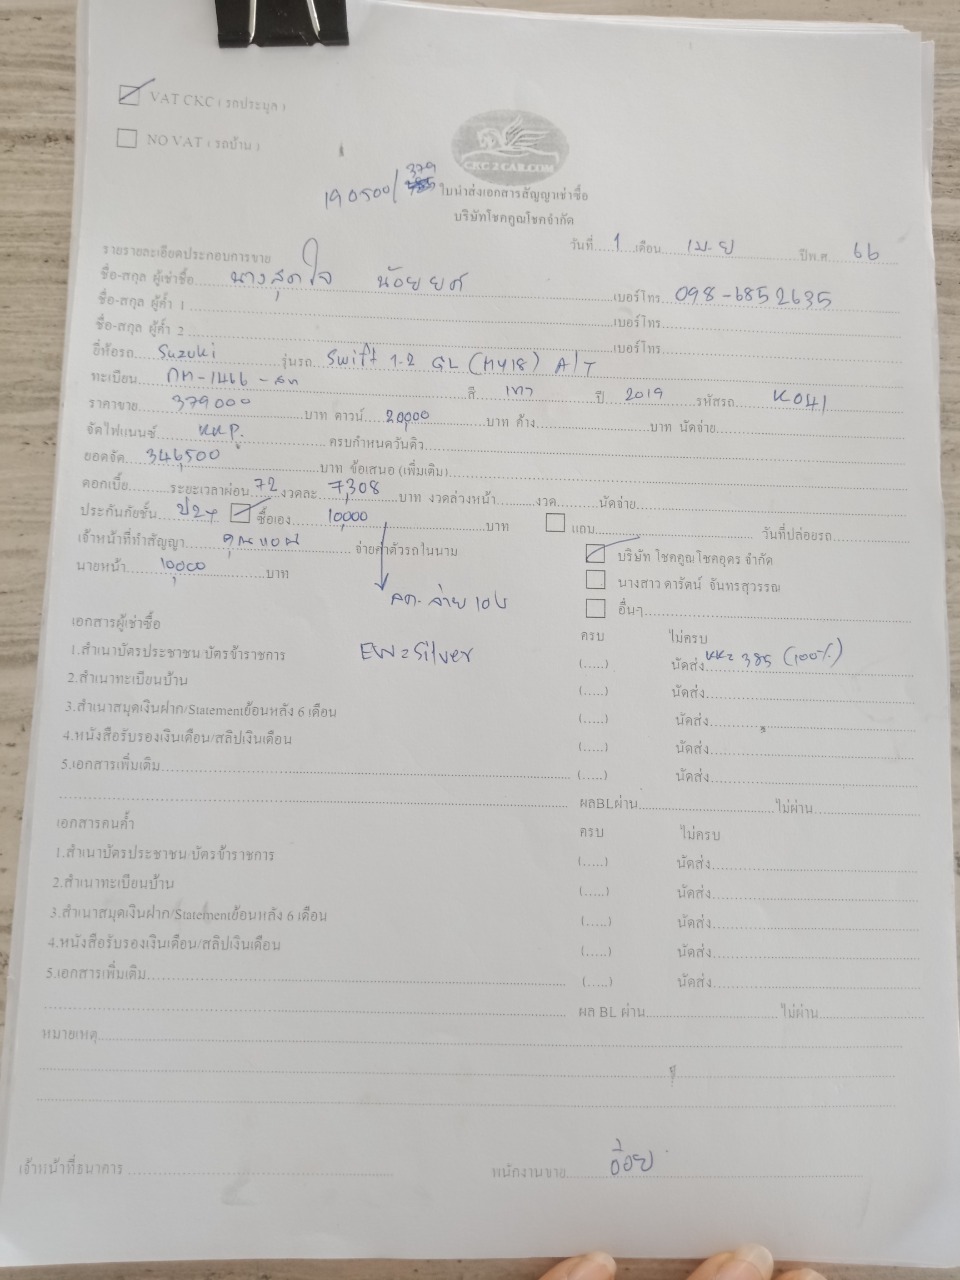 VAT CKC ( รถประมูล )
NO VAT ( รถบ้าน )
CKC2CAR.COM
190500/379
ใบนำส่งเอกสารสัญญาเช่าซื้อ
บริษัทโชคคูณโชคจำกัด
วันที่....1...เดือน....เม.ย....ปีพ.ศ....66
รายรายละเอียดประกอบการขาย
ชื่อ-สกุล ผู้เช่าซื้อ...นางสุดใจ น้อยยศ...เบอร์โทร...098-6852635
ชื่อ-สกุล ผู้ค้ำ 1...เบอร์โทร...
ชื่อ-สกุล ผู้ค้ำ 2...เบอร์โทร...
ยี่ห้อรถ...Suzuki...รุ่นรถ...Swift 1.2 GL (MY18) A/T
ทะเบียน...กท-1466-สท...สี...เทา...ปี...2019...รหัสรถ...K041
ราคาขาย...379000...บาท ดาวน์...20,000...บาท ค้าง...บาท นัดจ่าย...
จัดไฟแนนซ์...KKP....ครบกำหนดวันดิว...
ยอดจัด...346,500...บาท ข้อเสนอ (เพิ่มเติม)...
ดอกเบี้ย...ระยะเวลาผ่อน...72...งวดละ...7,308...บาท งวดล่วงหน้า...งวด...นัดจ่าย...
ประกันภัยชั้น...ป2+...ซื้อเอง...10,000...บาท แถม...วันที่ปล่อยรถ...
เจ้าหน้าที่ทำสัญญา...จ่ายค่าตัวรถในนาม บริษัท โชคคูณโชคอุดร จำกัด
นายหน้า...10,000...บาท นางสาว ดารัตน์ จันทรสุวรรณ
อื่นๆ...
เอกสารผู้เช่าซื้อ ครบ ไม่ครบ
1.สำเนาบัตรประชาชน บัตรข้าราชการ EW=Silver (.....) นัดส่ง...KK= 385 (100%)
2.สำเนาทะเบียนบ้าน (.....) นัดส่ง...
3.สำเนาสมุดเงินฝาก/Statementย้อนหลัง 6 เดือน (.....) นัดส่ง...
4.หนังสือรับรองเงินเดือน/สลิปเงินเดือน (.....) นัดส่ง...
5.เอกสารเพิ่มเติม... (.....) นัดส่ง...
ผลBLผ่าน...ไม่ผ่าน...
เอกสารคนค้ำ ครบ ไม่ครบ
1.สำเนาบัตรประชาชน/บัตรข้าราชการ (.....) นัดส่ง...
2.สำเนาทะเบียนบ้าน (.....) นัดส่ง...
3.สำเนาสมุดเงินฝาก/Statementย้อนหลัง 6 เดือน (.....) นัดส่ง...
4.หนังสือรับรองเงินเดือน/สลิปเงินเดือน (.....) นัดส่ง...
5.เอกสารเพิ่มเติม... (.....) นัดส่ง...
ผล BL ผ่าน...ไม่ผ่าน...
หมายเหตุ...
เจ้าหน้าที่ธนาคาร... พนักงานขาย...อ๊อย